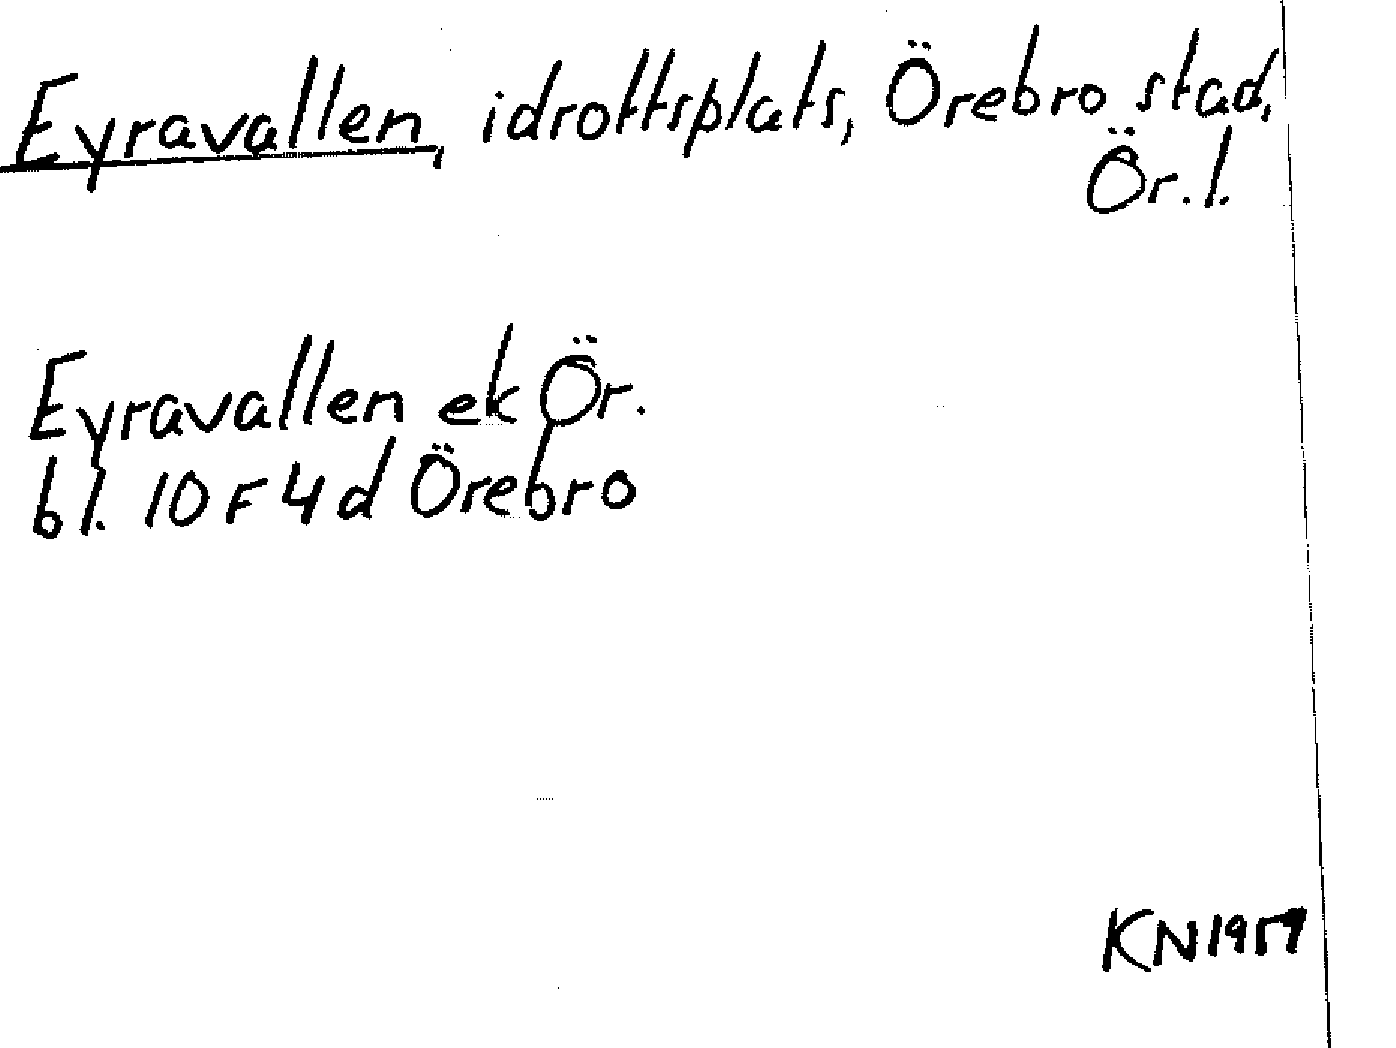 Eyravallen, idrottsplats, Örebro stad,
Ör. l.
Eyravallen ek Ör.
bl. 10 F 4 d Örebro
KN 1957